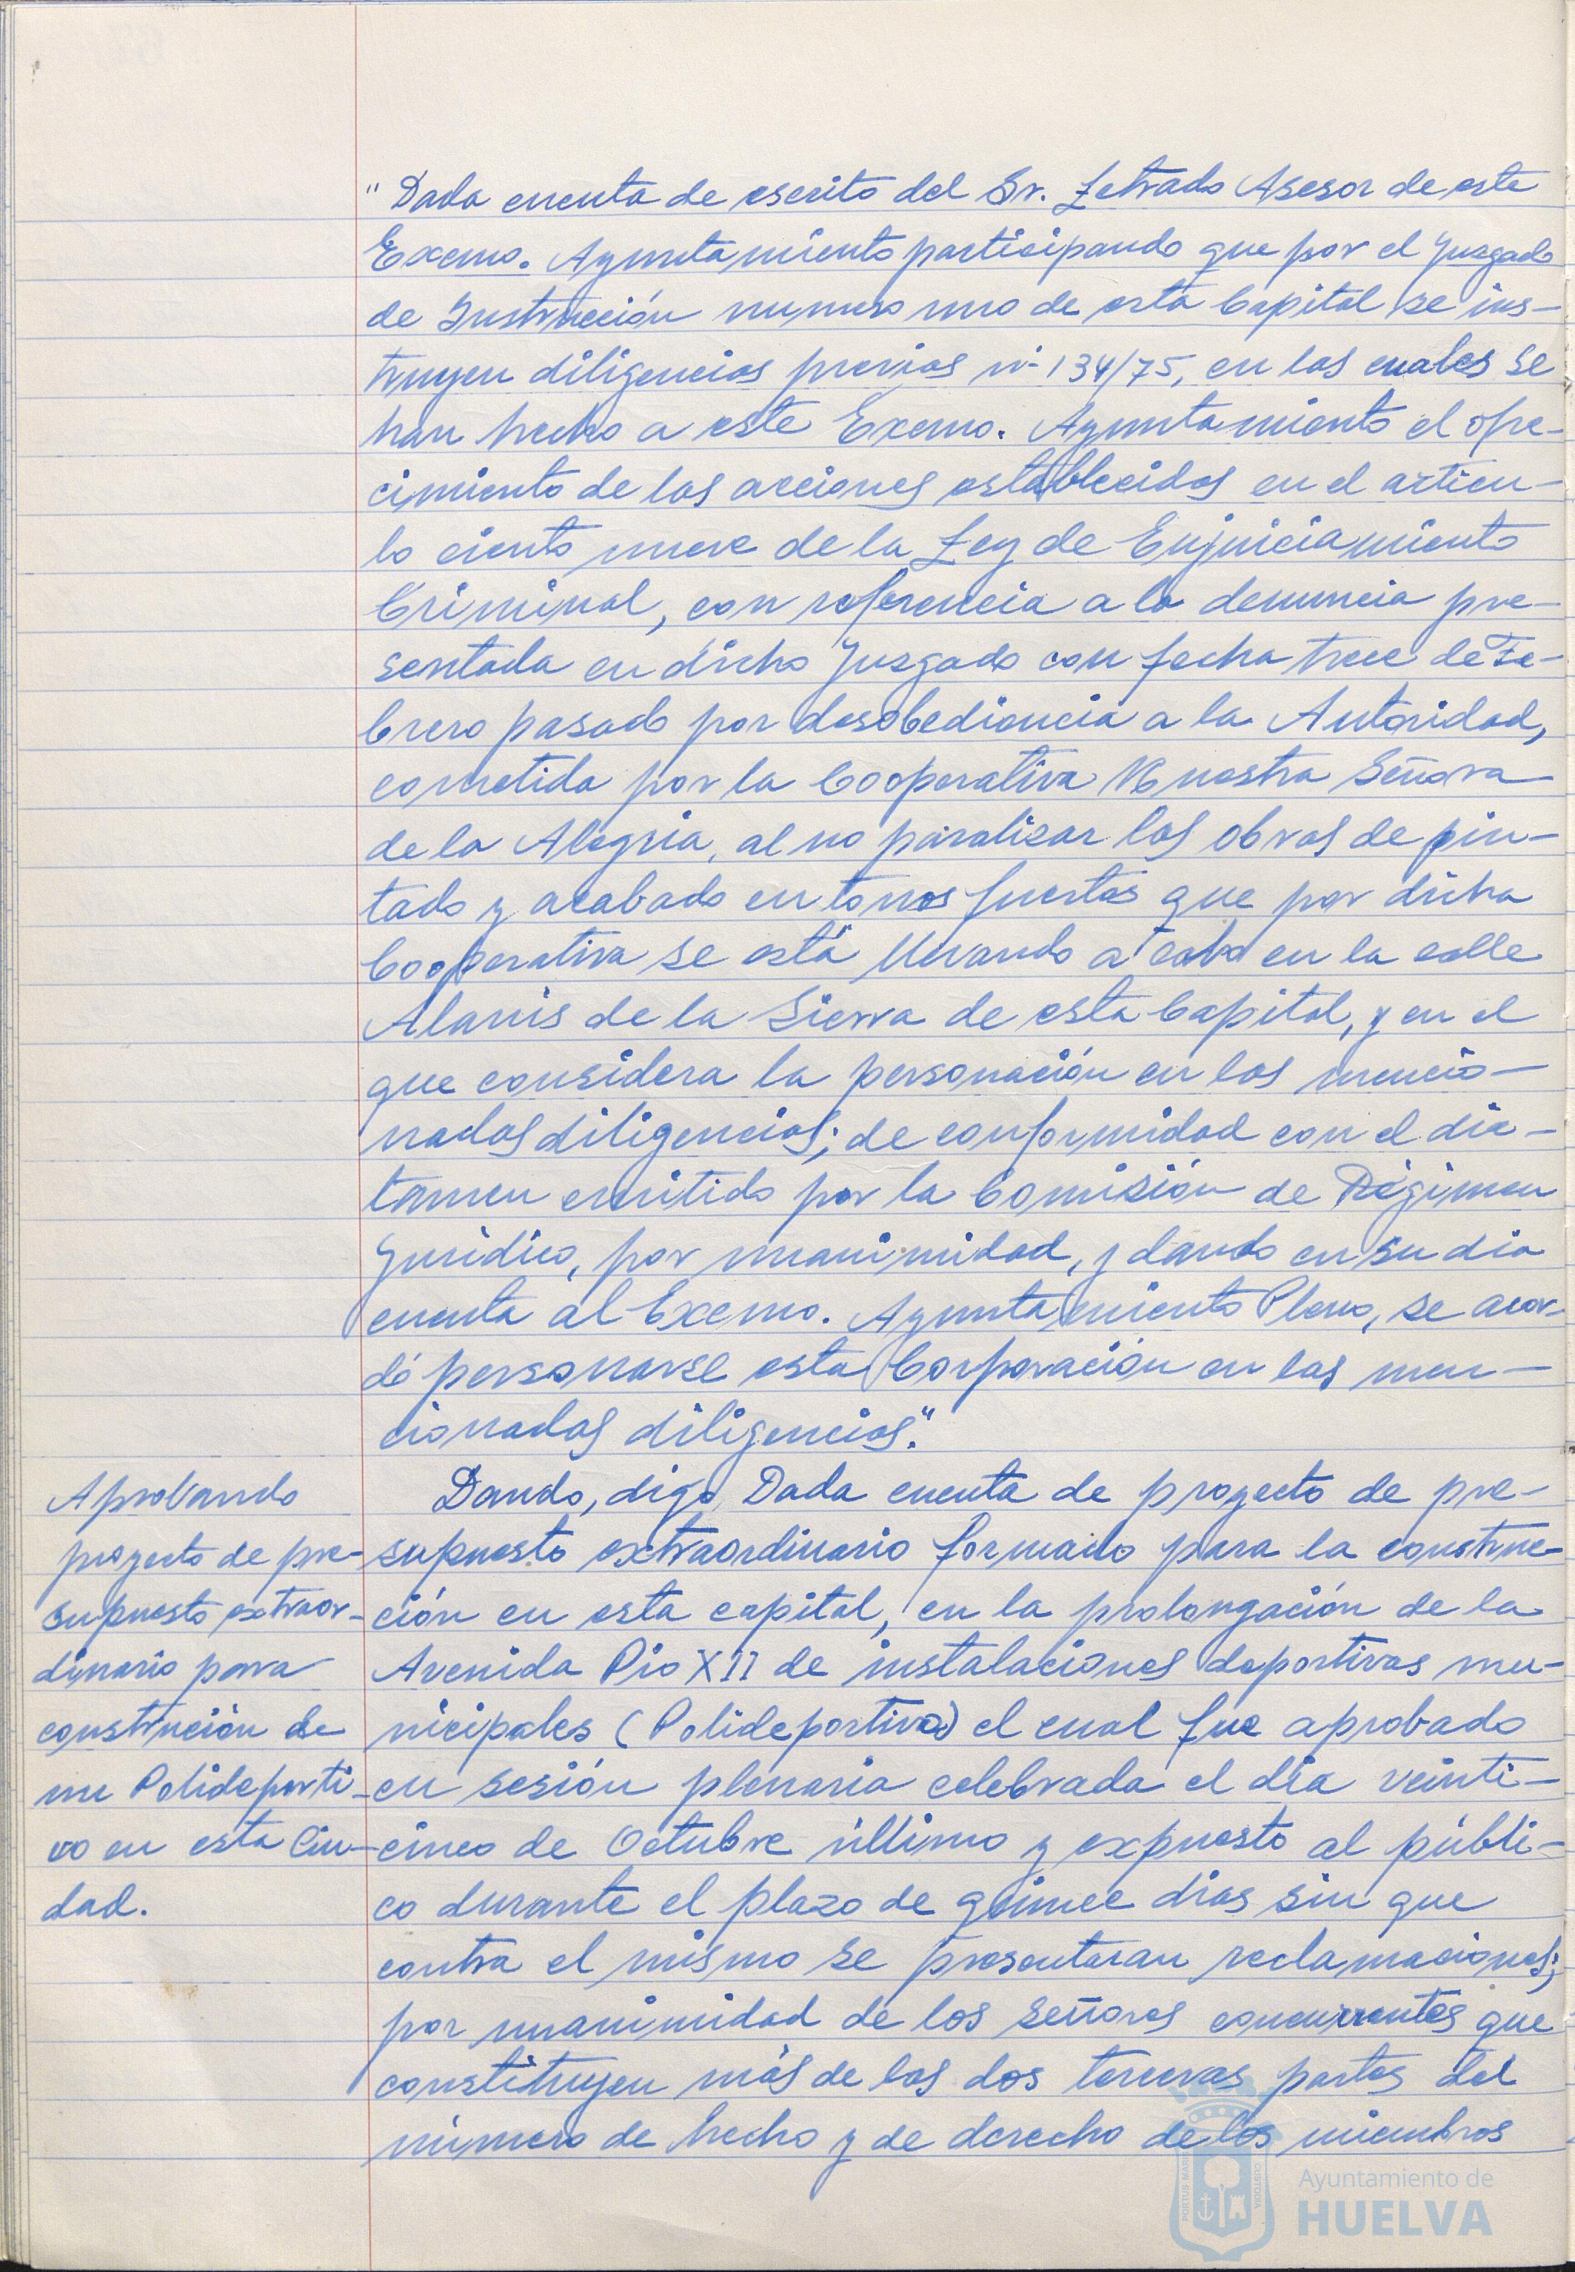 "Dada cuenta de escrito del Sr. Letrado Asesor de este
Excmo. Ayuntamiento participando que por el Juzgado
de Instrucción numero uno de esta Capital se ins-
truyen diligencias previas nº 134/75, en las cuales se
han hecho a este Excmo. Ayuntamiento el ofre-
cimiento de las acciones establecidas en el artícu-
lo ciento nueve de la Ley de Enjuiciamiento
Criminal, con referencia a la denuncia pre-
sentada en dicho Juzgado con fecha trece de Fe-
brero pasado por desobediencia a la Autoridad,
cometida por la Cooperativa Nuestra Señora
de la Alegria, al no paralizar las obras de pin-
tado y acabado en tonos fuertes que por dicha
Cooperativa se está llevando a cabo en la calle
Alanis de la Sierra de esta Capital, y en el
que considera la personación en las mencio-
nadas diligencias; de conformidad con el dic-
tamen emitido por la Comisión de Régimen
Jurídico, por unanimidad, y dando en su dia
cuenta al Excmo. Ayuntamiento Pleno, se acor-
dó personarse esta Corporación en las men-
cionadas diligencias".
Aprobando
proyecto de pre-
supuesto extraor-
dinario para
construción de
un Polideporti-
vo en esta Ciu-
dad.
Dando, digo, Dada cuenta de proyecto de pre-
supuesto extraordinario formado para la construc-
ción en esta capital, en la prolongación de la
Avenida Pio XII de instalaciones deportivas mu-
nicipales (Polideportiva) el cual fue aprobado
en sesión plenaria celebrada el día veinti-
cinco de Octubre último y expuesto al públi-
co durante el plazo de quince dias sin que
contra el mismo se presentaran reclamaciones;
por unanimidad de los señores concurrentes que
constituyen más de las dos terceras partes del
número de hecho y de derecho de los miembros
PORTUS MARIS
CUSTODIA
Ayuntamiento de
HUELVA